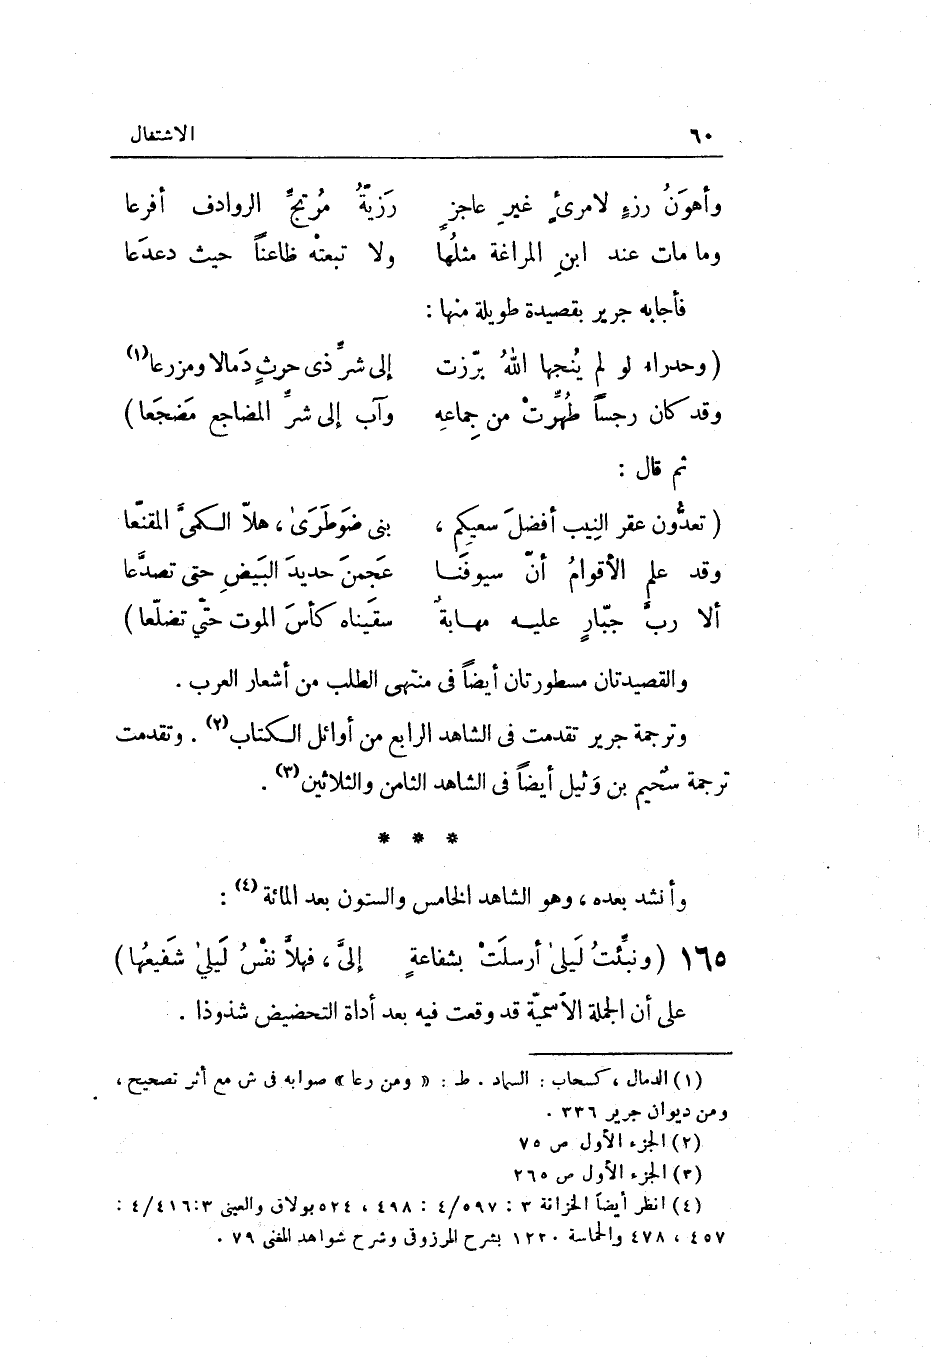 ٦٠ الاشتغال
وأهوَنُ رزءٍ لامرئٍ غيرِ عاجزٍ رَزيّةُ مُرتجِّ الروادف أفرعا
وما مات عند ابنِ المراغة مثلُها ولا تبعتْه ظاعناً حيث دعدَعا
فأجابه جرير بقصيدة طويلة منها :
( وحدراء لو لم يُنجها اللهُ برّزت إلى شرِّ ذى حرثٍ دَمالا ومزرعا(١)
وقد كان رجساً طُهِّرتْ من جِماعِه وآب إلى شرِّ المضاجع مَضجَعا )
ثم قال :
( تعدُّون عقر النِيب أفضلَ سعيكم ، بنى ضَوطَرَى ، هلاّ الكمىَّ المقنّعا
وقد علم الأقوامُ أنّ سيوفَنا عَجمنَ حديدَ البَيضِ حتى تصدَّعا
ألا ربَّ جبّارٍ عليه مهابةٌ سقَيناه كأسَ الموت حتّى تضلّعا )
والقصيدتان مسطورتان أيضاً فى منتهى الطلب من أشعار العرب .
وترجمة جرير تقدمت فى الشاهد الرابع من أوائل الكتاب(٢) . وتقدمت
ترجمة سُحيم بن وَثيل أيضاً فى الشاهد الثامن والثلاثين(٣) .
* * *
وأنشد بعده ، وهو الشاهد الخامس والستون بعد المائة(٤) :
١٦٥ ( ونبِّئتُ لَيلى أرسلَتْ بشفاعةٍ إلىَّ ، فهلاَّ نفْسُ لَيلى شَفيعُها )
على أن الجملة الاسميّة قد وقعت فيه بعد أداة التحضيض شذوذا .
(١) الدمال ، كسحاب : السماد . ط : « ومن رعا » صوابه فى ش مع أثر تصحيح ،
ومن ديوان جرير ٣٣٦ .
(٢) الجزء الأول ص ٧٥
(٣) الجزء الأول ص ٢٦٥
(٤) انظر أيضا الخزانة ٣ : ٥٩٧/٤ : ٤٩٨ ، ٥٢٤ بولاق والعينى ٣:٤١٦/٤ :
٤٥٧ ، ٤٧٨ والحماسة ١٢٢٠ بشرح المرزوقى وشرح شواهد المغنى ٧٩ .